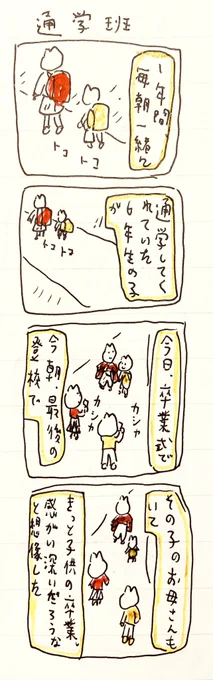 通学班
1年間
毎朝一緒に
トコ
トコ
通学してく
れていた
6年生の子
が
トコ
トコ
今日、卒業式で
カシャ
カシャ
今朝、最後の
登校で
その子のお母さんも
いて
きっと子供の卒業。
感がい深いだろうな
と想像した